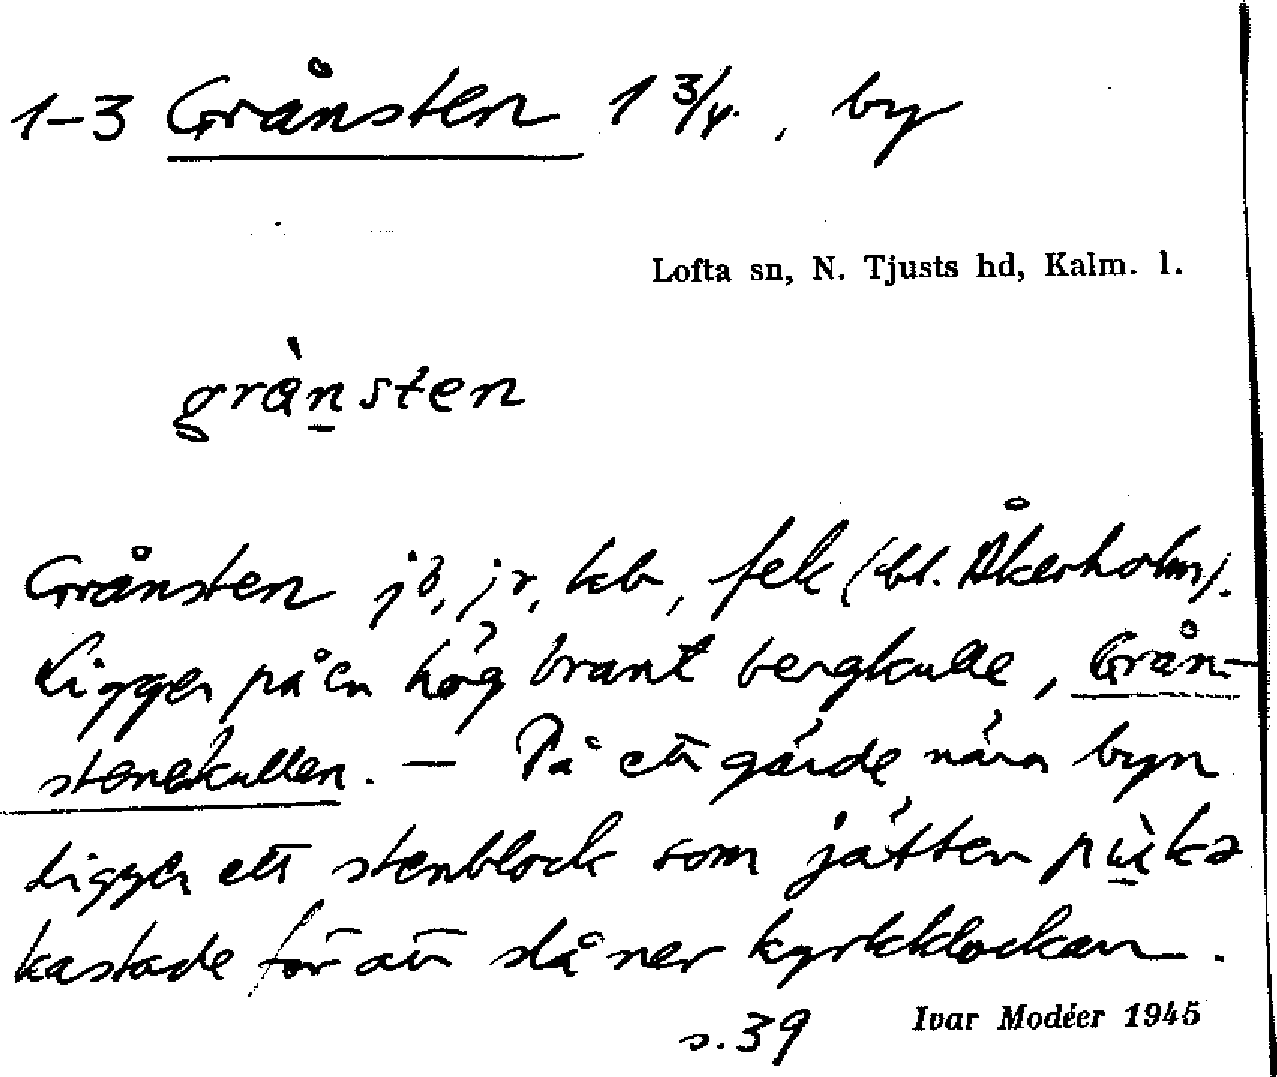 1-3 Grånsten 1 3/4. , by
Lofta sn, N. Tjusts hd, Kalm. l.
grànsten
Grånsten jb, jr, kb, fek (bl. Åkerholm).
Ligger på en hög brant bergkulle, Grån-
stenekullen. — På ett gärde nära byn
ligger ett stenblock som jätten pùka
kastade för att slå ner kyrkklockan.
s. 39
Ivar Modéer 1945